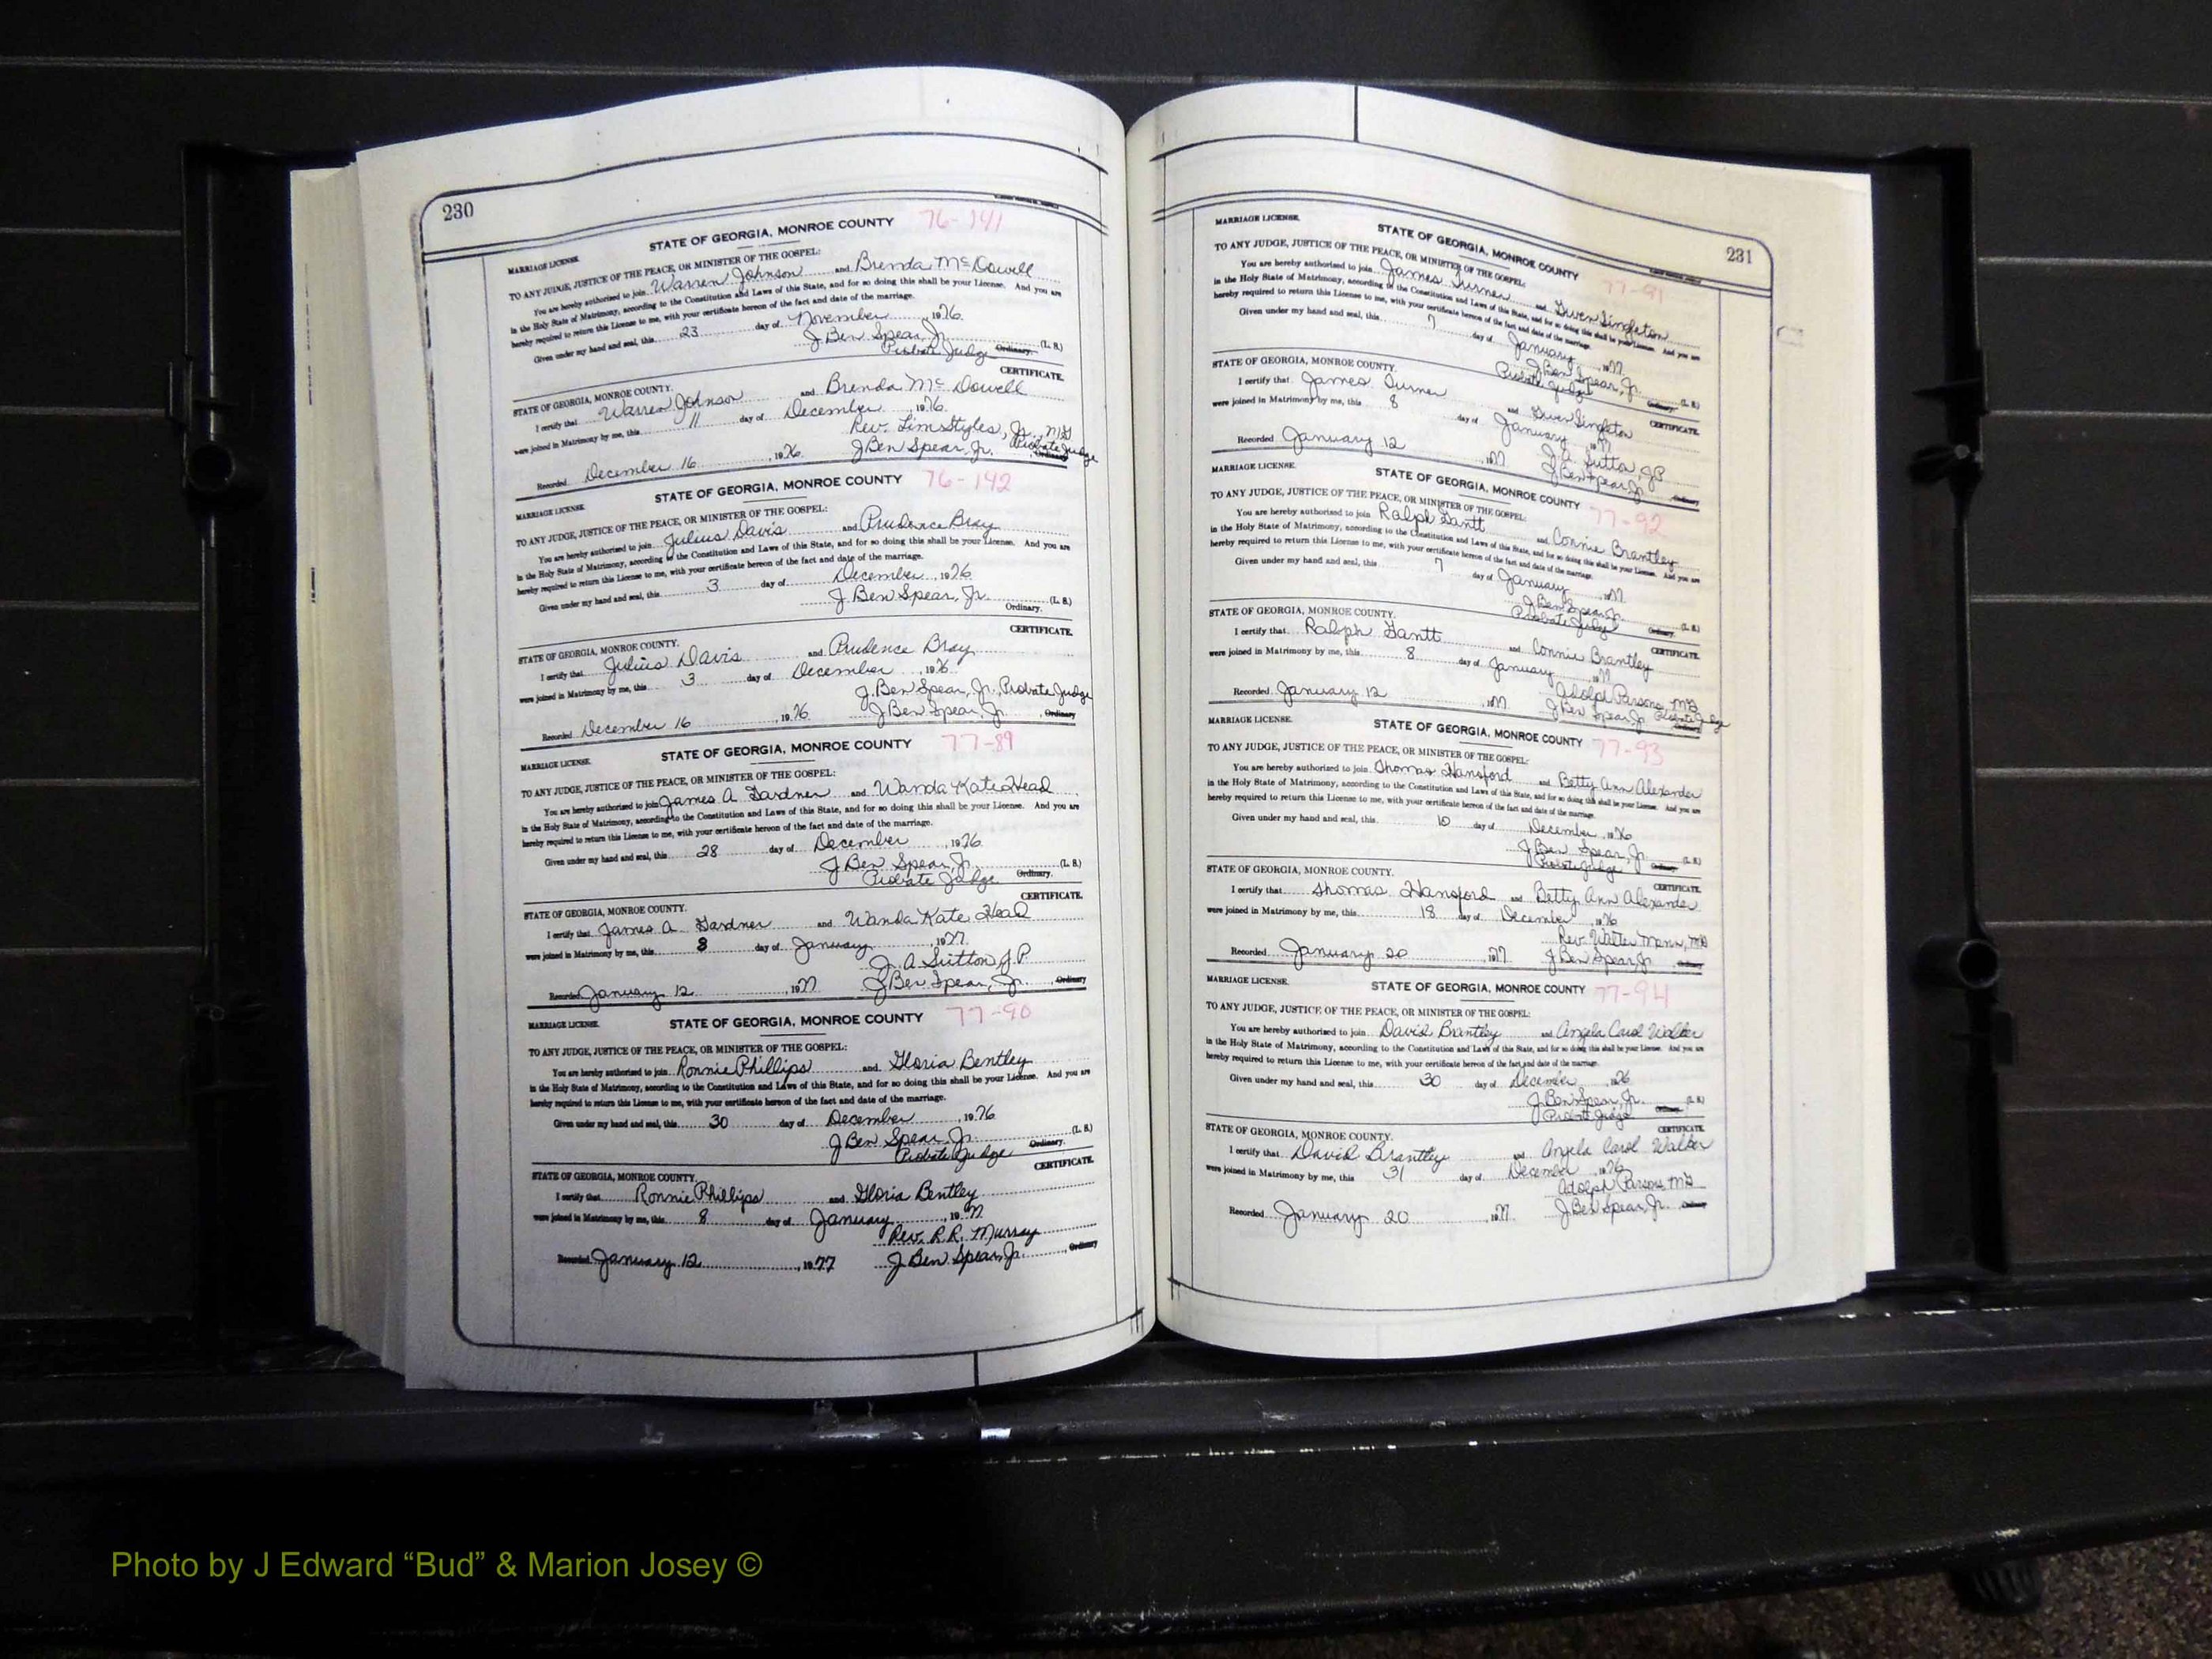 230
STATE OF GEORGIA, MONROE COUNTY 76-141
MARRIAGE LICENSE.
TO ANY JUDGE, JUSTICE OF THE PEACE, OR MINISTER OF THE GOSPEL:
You are hereby authorized to join Warren Johnson and Brenda McDowell
in the Holy State of Matrimony, according to the Constitution and Laws of this State, and for so doing this shall be your License. And you are
hereby required to return this License to me, with your certificate hereon of the fact and date of the marriage.
Given under my hand and seal, this 23 day of November, 1976.
J Ben Spear, Jr. (L. S.)
Probate Judge Ordinary.
CERTIFICATE.
STATE OF GEORGIA, MONROE COUNTY.
I certify that Warren Johnson and Brenda McDowell
were joined in Matrimony by me, this 11 day of December, 1976.
Rev. Tim Styles, Jr., MG
Probate Judge
Recorded December 16, 1976. J Ben Spear, Jr. Ordinary
STATE OF GEORGIA, MONROE COUNTY 76-142
MARRIAGE LICENSE.
TO ANY JUDGE, JUSTICE OF THE PEACE, OR MINISTER OF THE GOSPEL:
You are hereby authorized to join Julius Davis and Prudence Bray
in the Holy State of Matrimony, according to the Constitution and Laws of this State, and for so doing this shall be your License. And you are
hereby required to return this License to me, with your certificate hereon of the fact and date of the marriage.
Given under my hand and seal, this 3 day of December, 1976
J Ben Spear, Jr. (L. S.)
Ordinary.
CERTIFICATE.
STATE OF GEORGIA, MONROE COUNTY.
I certify that Julius Davis and Prudence Bray
were joined in Matrimony by me, this 3 day of December, 1976.
J. Ben Spear, Jr., Probate Judge
Recorded December 16, 1976. J Ben Spear, Jr., Ordinary
STATE OF GEORGIA, MONROE COUNTY 77-89
MARRIAGE LICENSE.
TO ANY JUDGE, JUSTICE OF THE PEACE, OR MINISTER OF THE GOSPEL:
You are hereby authorized to join James A Gardner and Wanda Kate Head
in the Holy State of Matrimony, according to the Constitution and Laws of this State, and for so doing this shall be your License. And you are
hereby required to return this License to me, with your certificate hereon of the fact and date of the marriage.
Given under my hand and seal, this 28 day of December, 1976.
J Ben Spear, Jr. (L. S.)
Probate Judge Ordinary.
CERTIFICATE.
STATE OF GEORGIA, MONROE COUNTY.
I certify that James A. Gardner and Wanda Kate Head
were joined in Matrimony by me, this 8 day of January, 1977.
J. A Sutton, J.P
Recorded January 12, 1977 J Ben Spear, Jr., Ordinary
STATE OF GEORGIA, MONROE COUNTY 77-90
MARRIAGE LICENSE.
TO ANY JUDGE, JUSTICE OF THE PEACE, OR MINISTER OF THE GOSPEL:
You are hereby authorized to join Ronnie Phillips and Gloria Bentley
in the Holy State of Matrimony, according to the Constitution and Laws of this State, and for so doing this shall be your License. And you are
hereby required to return this License to me, with your certificate hereon of the fact and date of the marriage.
Given under my hand and seal, this 30 day of December, 1976
J Ben Spear, Jr. (L. S.)
Probate Judge Ordinary.
CERTIFICATE.
STATE OF GEORGIA, MONROE COUNTY.
I certify that Ronnie Phillips and Gloria Bentley
were joined in Matrimony by me, this 8 day of January, 1977
Rev. R.R. Murray
Recorded January 12, 1977 J Ben Spear, Jr., Ordinary
231
MARRIAGE LICENSE.
STATE OF GEORGIA, MONROE COUNTY 77-91
TO ANY JUDGE, JUSTICE OF THE PEACE, OR MINISTER OF THE GOSPEL:
You are hereby authorized to join James Turner and Gwen Singleton
in the Holy State of Matrimony, according to the Constitution and Laws of this State, and for so doing this shall be your License. And you are
hereby required to return this License to me, with your certificate hereon of the fact and date of the marriage.
Given under my hand and seal, this 7 day of January, 1977
J Ben Spear, Jr. (L. S.)
Probate Judge Ordinary.
CERTIFICATE.
STATE OF GEORGIA, MONROE COUNTY.
I certify that James Turner and Gwen Singleton
were joined in Matrimony by me, this 8 day of January, 1977
J.A. Sutton, JP
Recorded January 12, 1977 J Ben Spear Jr Ordinary
MARRIAGE LICENSE.
STATE OF GEORGIA, MONROE COUNTY 77-92
TO ANY JUDGE, JUSTICE OF THE PEACE, OR MINISTER OF THE GOSPEL:
You are hereby authorized to join Ralph Gantt and Connie Brantley
in the Holy State of Matrimony, according to the Constitution and Laws of this State, and for so doing this shall be your License. And you are
hereby required to return this License to me, with your certificate hereon of the fact and date of the marriage.
Given under my hand and seal, this 7 day of January, 1977.
J Ben Spear Jr. (L. S.)
Probate Judge Ordinary.
CERTIFICATE.
STATE OF GEORGIA, MONROE COUNTY.
I certify that Ralph Gantt and Connie Brantley
were joined in Matrimony by me, this 8 day of January, 1977
Adolph Parsons, MG
Recorded January 12, 1977 J Ben Spear, Jr Probate Judge
Ordinary
MARRIAGE LICENSE.
STATE OF GEORGIA, MONROE COUNTY 77-93
TO ANY JUDGE, JUSTICE OF THE PEACE, OR MINISTER OF THE GOSPEL:
You are hereby authorized to join Thomas Hansford and Betty Ann Alexander
in the Holy State of Matrimony, according to the Constitution and Laws of this State, and for so doing this shall be your License. And you are
hereby required to return this License to me, with your certificate hereon of the fact and date of the marriage.
Given under my hand and seal, this 10 day of December, 1976
J Ben Spear, Jr. (L. S.)
Probate Judge Ordinary.
CERTIFICATE.
STATE OF GEORGIA, MONROE COUNTY.
I certify that Thomas Hansford and Betty Ann Alexander
were joined in Matrimony by me, this 18 day of December, 1976
Rev. Walter Mann, MG
Recorded January 20, 1977 J Ben Spear, Jr Ordinary
MARRIAGE LICENSE.
STATE OF GEORGIA, MONROE COUNTY 77-94
TO ANY JUDGE, JUSTICE OF THE PEACE, OR MINISTER OF THE GOSPEL:
You are hereby authorized to join David Brantley and Angela Carol Walker
in the Holy State of Matrimony, according to the Constitution and Laws of this State, and for so doing this shall be your License. And you are
hereby required to return this License to me, with your certificate hereon of the fact and date of the marriage.
Given under my hand and seal, this 30 day of December, 1976
J Ben Spear, Jr. (L. S.)
Probate Judge Ordinary.
CERTIFICATE.
STATE OF GEORGIA, MONROE COUNTY.
I certify that David Brantley and Angela Carol Walker
were joined in Matrimony by me, this 31 day of December, 1976
Adolph Parsons MG
Recorded January 20, 1977. J Ben Spear, Jr. Ordinary
Photo by J Edward “Bud” & Marion Josey ©